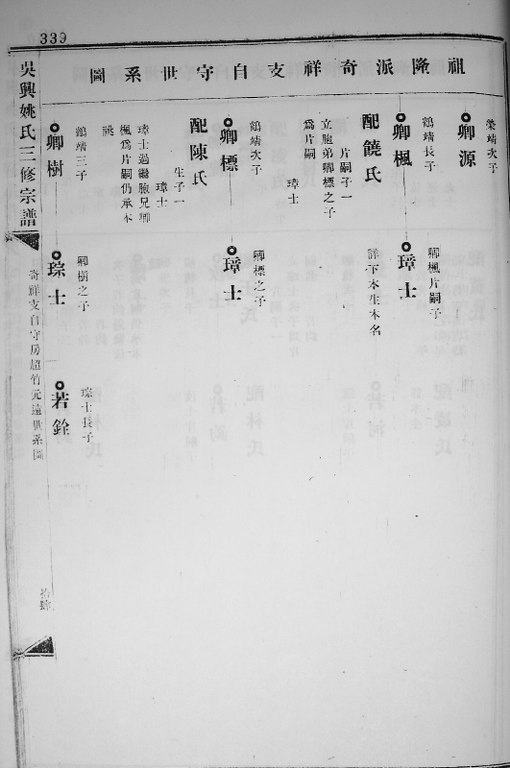 339
祖隆派奇祥支自守世系圖
榮靖次子
卿源
鶴靖長子
卿楓
配饒氏
片嗣子一
立胞弟卿標之子
為片嗣
璋士
卿楓片嗣子
璋士
詳下本生本名
鶴靖次子
卿標
配陳氏
生子一
璋士
璋士過繼胞兄卿
楓為片嗣仍承本
祧
卿標之子
璋士
鶴靖三子
卿樹
卿樹之子
琮士
琮士長子
若銓
吳興姚氏三修宗譜
奇祥支自守房超竹元遠世系圖